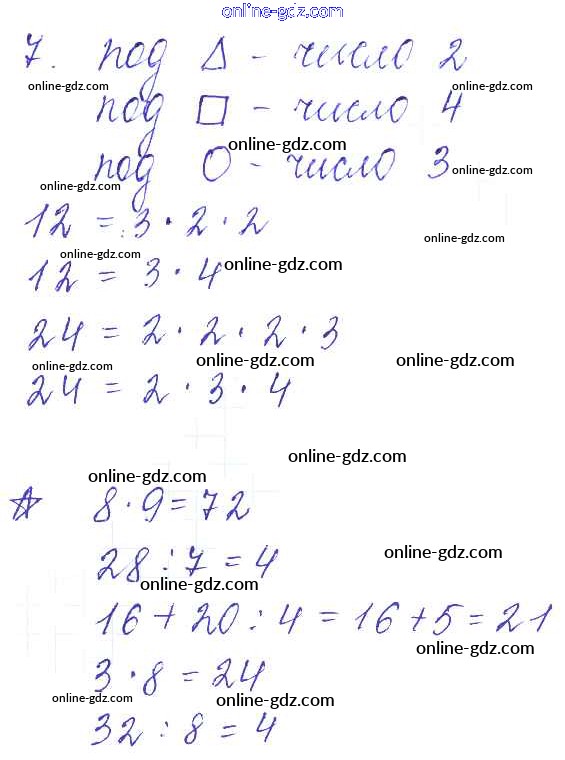 online-gdz.com
7. под △ - число 2
online-gdz.com online-gdz.com
под □ - число 4
online-gdz.com
под О - число 3
online-gdz.com online-gdz.com
12 = 3 · 2 · 2
online-gdz.com
online-gdz.com
12 = 3 · 4
online-gdz.com
24 = 2 · 2 · 2 · 3
online-gdz.com online-gdz.com online-gdz.com
24 = 2 · 3 · 4
online-gdz.com
online-gdz.com
☆ 8 · 9 = 72
online-gdz.com
28 : 7 = 4
online-gdz.com
16 + 20 : 4 = 16 + 5 = 21
online-gdz.com
3 · 8 = 24
online-gdz.com online-gdz.com
32 : 8 = 4